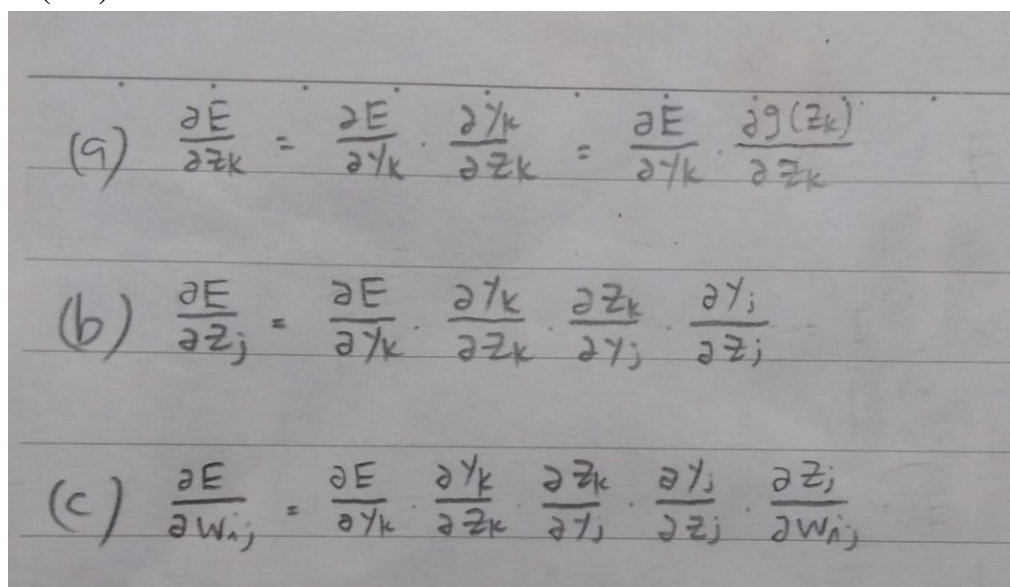 (a) ∂E/∂z_k = ∂E/∂y_k · ∂y_k/∂z_k = ∂E/∂y_k · ∂g(z_k)/∂z_k
(b) ∂E/∂z_j = ∂E/∂y_k · ∂y_k/∂z_k · ∂z_k/∂y_j · ∂y_j/∂z_j
(c) ∂E/∂w_ij = ∂E/∂y_k · ∂y_k/∂z_k · ∂z_k/∂y_j · ∂y_j/∂z_j · ∂z_j/∂w_ij